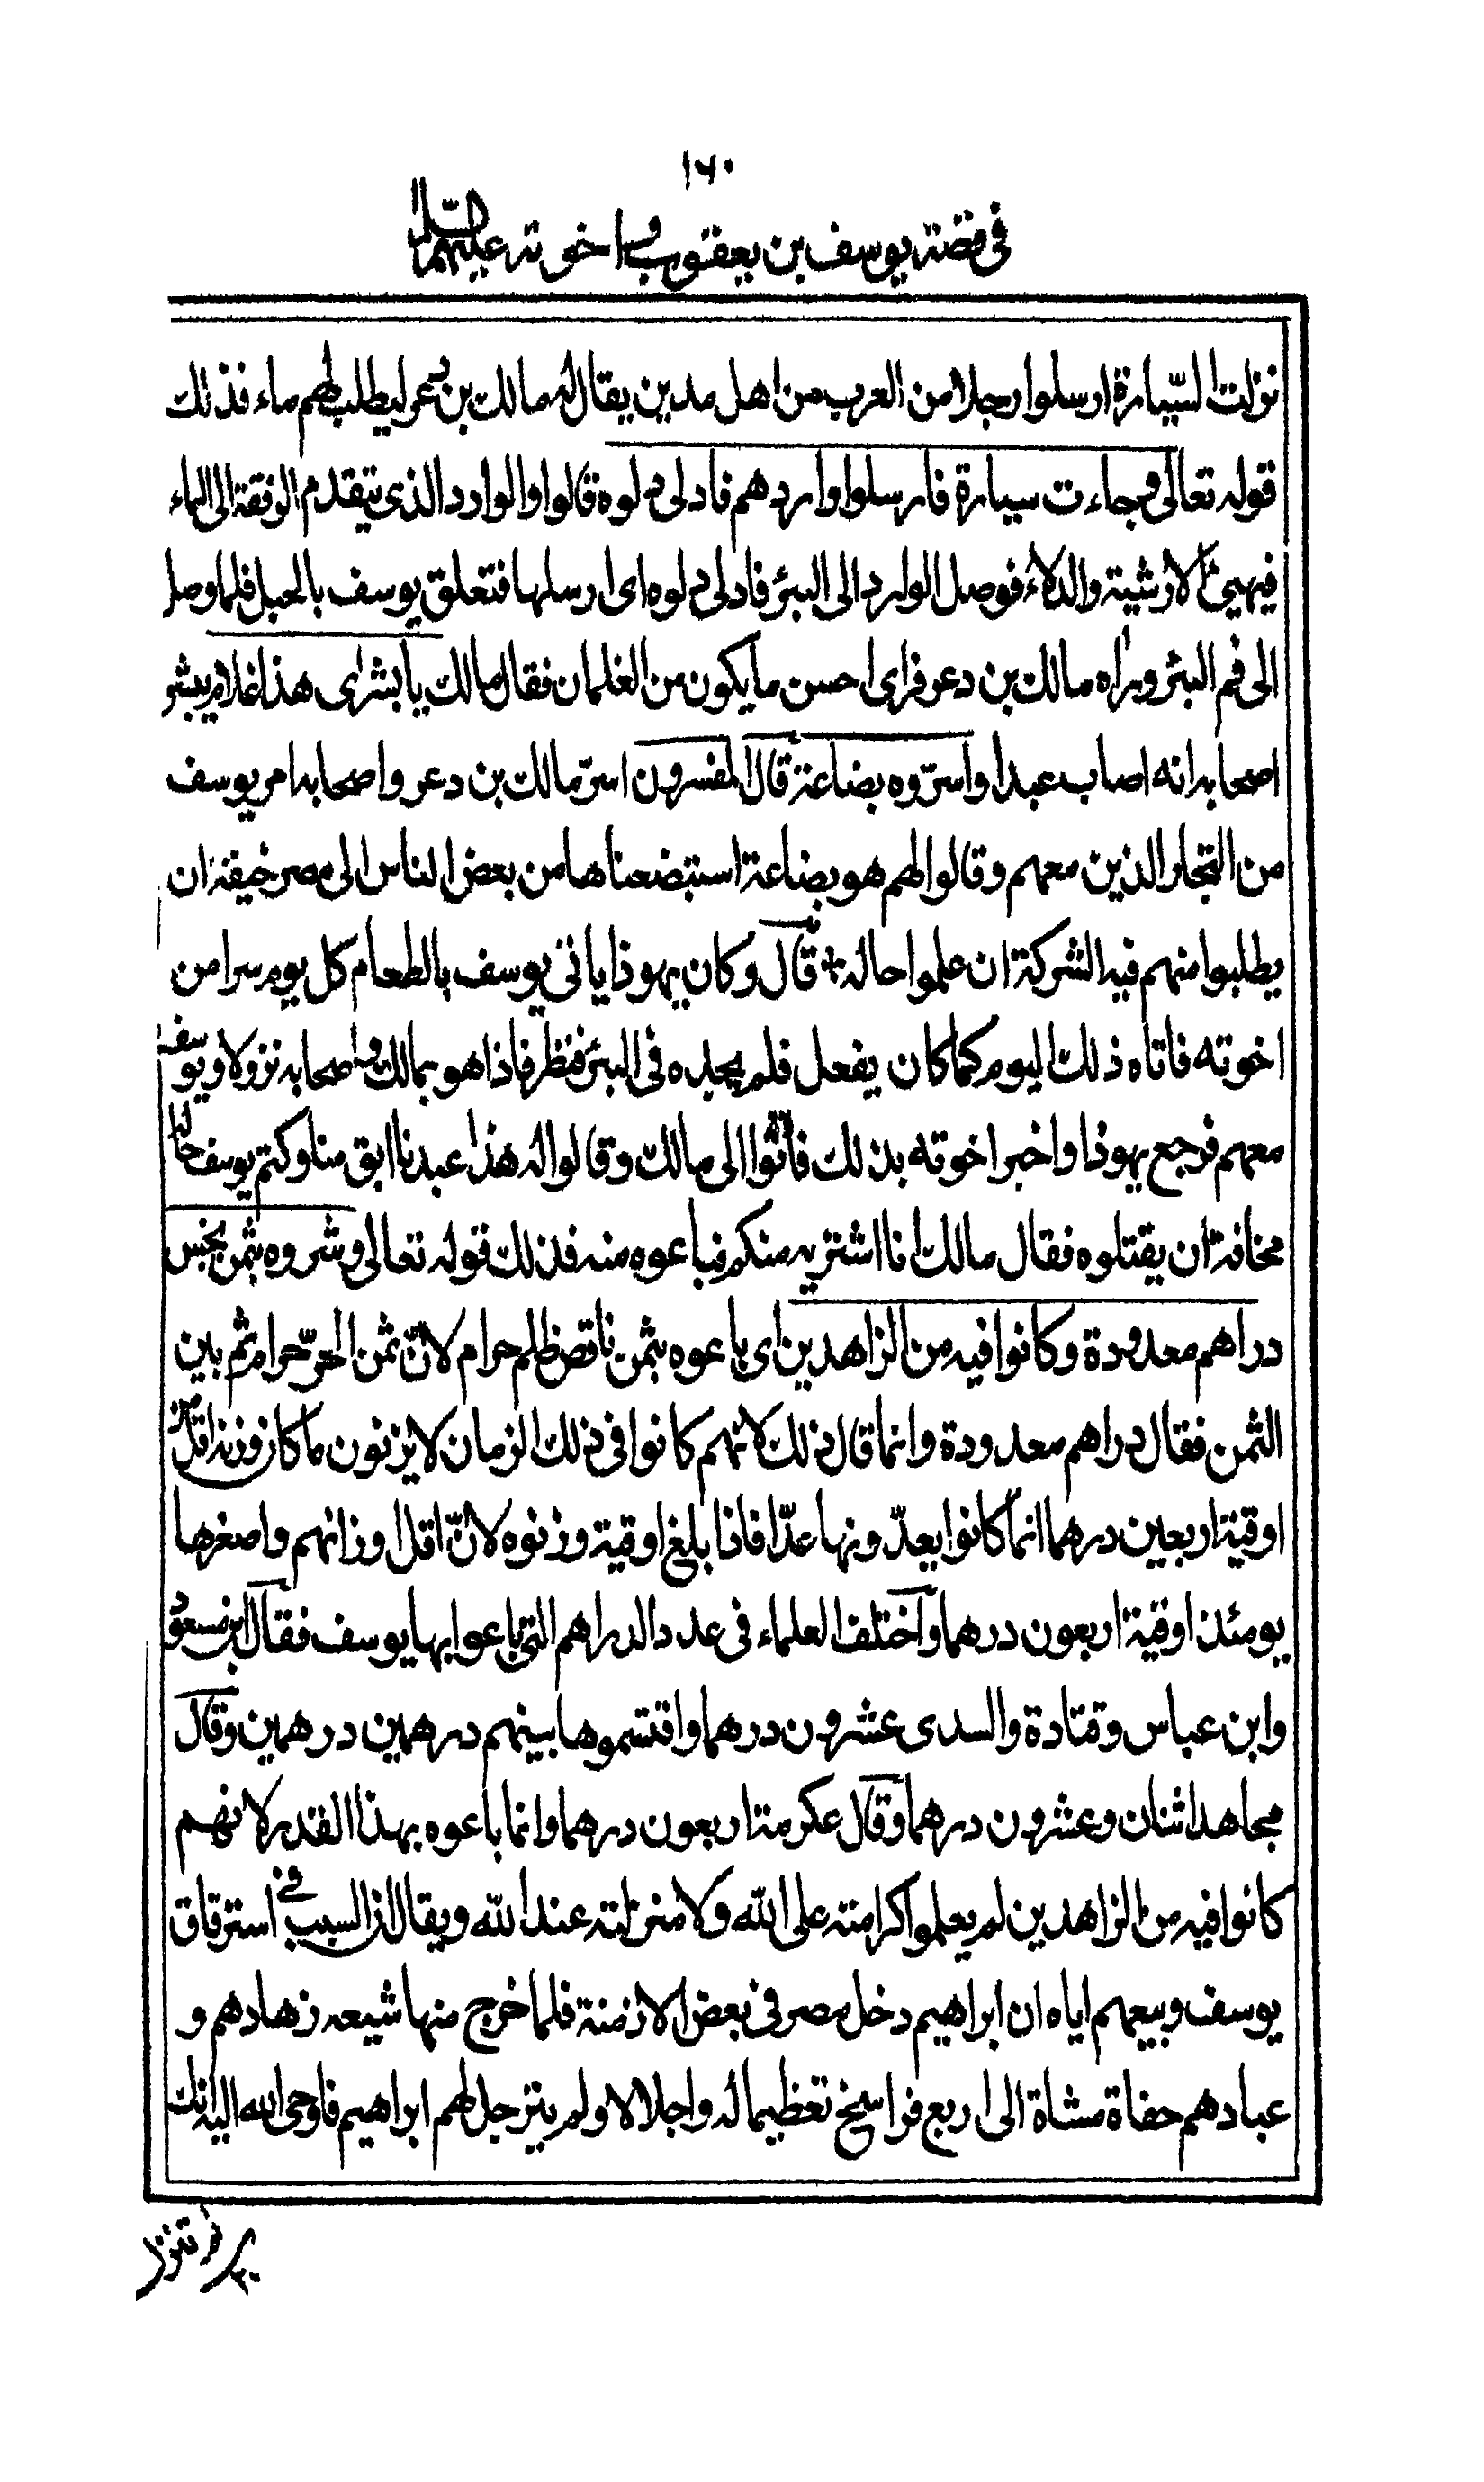 ١٦٠
في قصة يوسف بن يعقوب واخوته عليهم السلام
نزلت السّيارة ارسلوا رجلا من العرب من اهل مدين يقال له مالك بن دعر ليطلب لهم ماء فذلك
قوله تعالى وجاءت سيارة فارسلوا واردهم فادلى دلوه قالوا والوارد الذي يتقدم الرفقة الى الماء
فيهيئ الارشية والدلاء فوصل الوارد الى البئر فادلى دلوه اى ارسلها فتعلق يوسف بالحبل فلما وصل
الى فم البئر وراه مالك بن دعر فراى احسن ما يكون من الغلمان فقال مالك يا بشراى هذا غلام يبشر
اصحابه انه اصاب عبدا واسرّوه بضاعة قال المفسرون اسرّ مالك بن دعر واصحابه امر يوسف
من التجار الذين معهم وقالوا لهم هو بضاعة استبضعناها من بعض الناس الى مصر خيفة ان
يطلبوا منهم فيه الشركة ان علموا حاله * قال وكان يهوذا ياتى يوسف بالطعام كل يوم سرا من
اخوته فاتاه ذلك اليوم كما كان يفعل فلم يجده في البئر فنظر فاذا هو بمالك واصحابه نزولا ويوسف
معهم فرجع يهوذا واخبر اخوته بذلك فأتوا الى مالك وقالوا له هذا عبدنا ابق منا وكتم يوسف حاله
مخافة ان يقتلوه فقال مالك انا اشتريه منكم فباعوه منه فذلك قوله تعالى وشروه بثمن بخس
دراهم معدودة وكانوا فيه من الزاهدين اى باعوه بثمن ناقص ظلم حرام لانّ ثمن الحرّ حرام ثم بين
الثمن فقال دراهم معدودة وانما قال ذلك لانهم كانوا في ذلك الزمان لا يزنون ما كان وزنه اقل من
اوقية اربعين درهما انما كانوا يعدّونها عدّا فاذا بلغ اوقية وزنوه لانّ اقل اوزانهم واصغرها
يومئذ اوقية اربعون درهما واختلف العلماء في عدد الدراهم التي باعوا بها يوسف فقال ابن مسعود
وابن عباس وقتادة والسدى عشرون درهما واقتسموها بينهم درهمين درهمين وقال
مجاهد اثنان وعشرون درهما وقال عكرمة اربعون درهما وانما باعوه بهذا القدر لانهم
كانوا فيه من الزاهدين لم يعلموا كرامته على الله ولا منزلته عند الله ويقال ان السبب في استرقاق
يوسف وبيعهم اياه ان ابراهيم دخل مصر في بعض الازمنة فلما خرج منها شيعه زهادهم و
عبادهم حفاة مشاة الى اربع فراسخ تعظيما له واجلالا ولم يترجل لهم ابراهيم فاوحى الله اليه انك